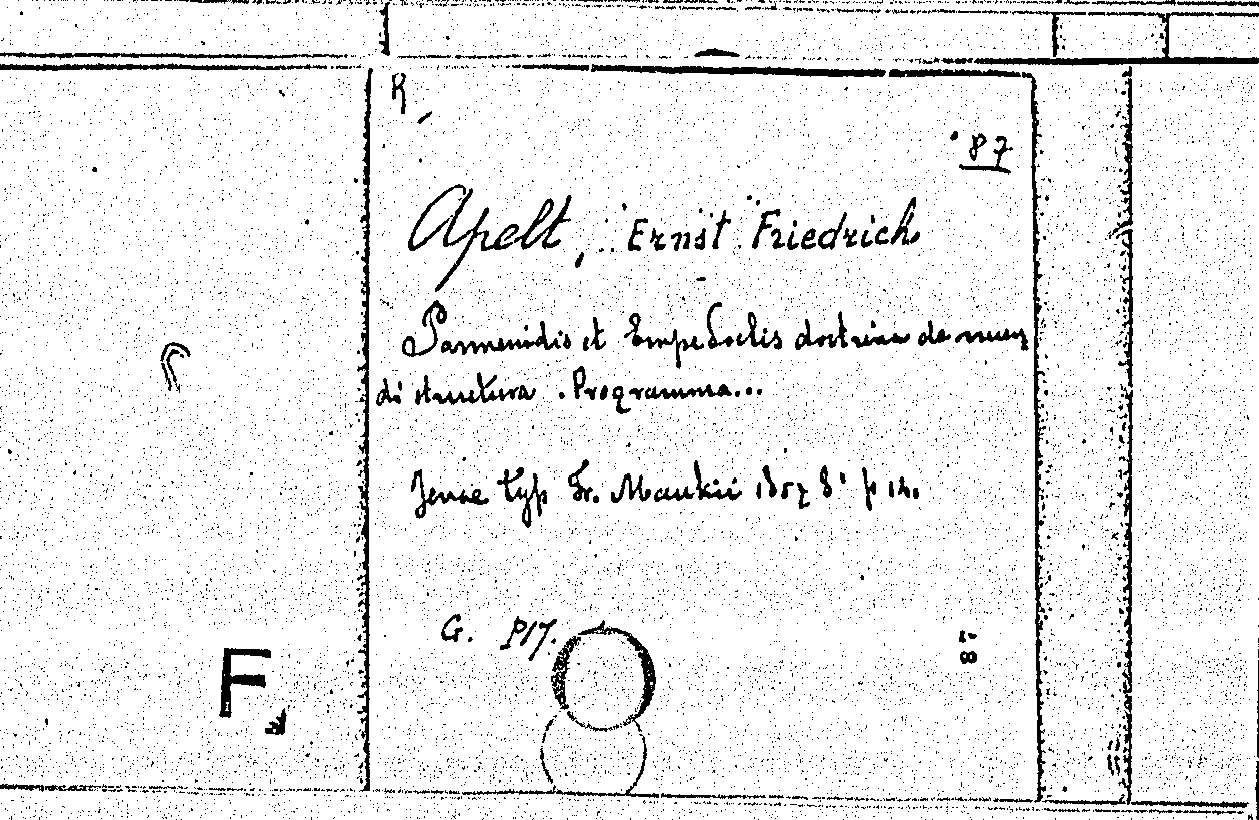 R
87
Apelt, Ernst Friedrich
Parmenidis et Empedoclis doctrina de mun
di structura. Programma...
Jenae typ Fr. Maukii 1857 8° p 12.
G. P17.
F